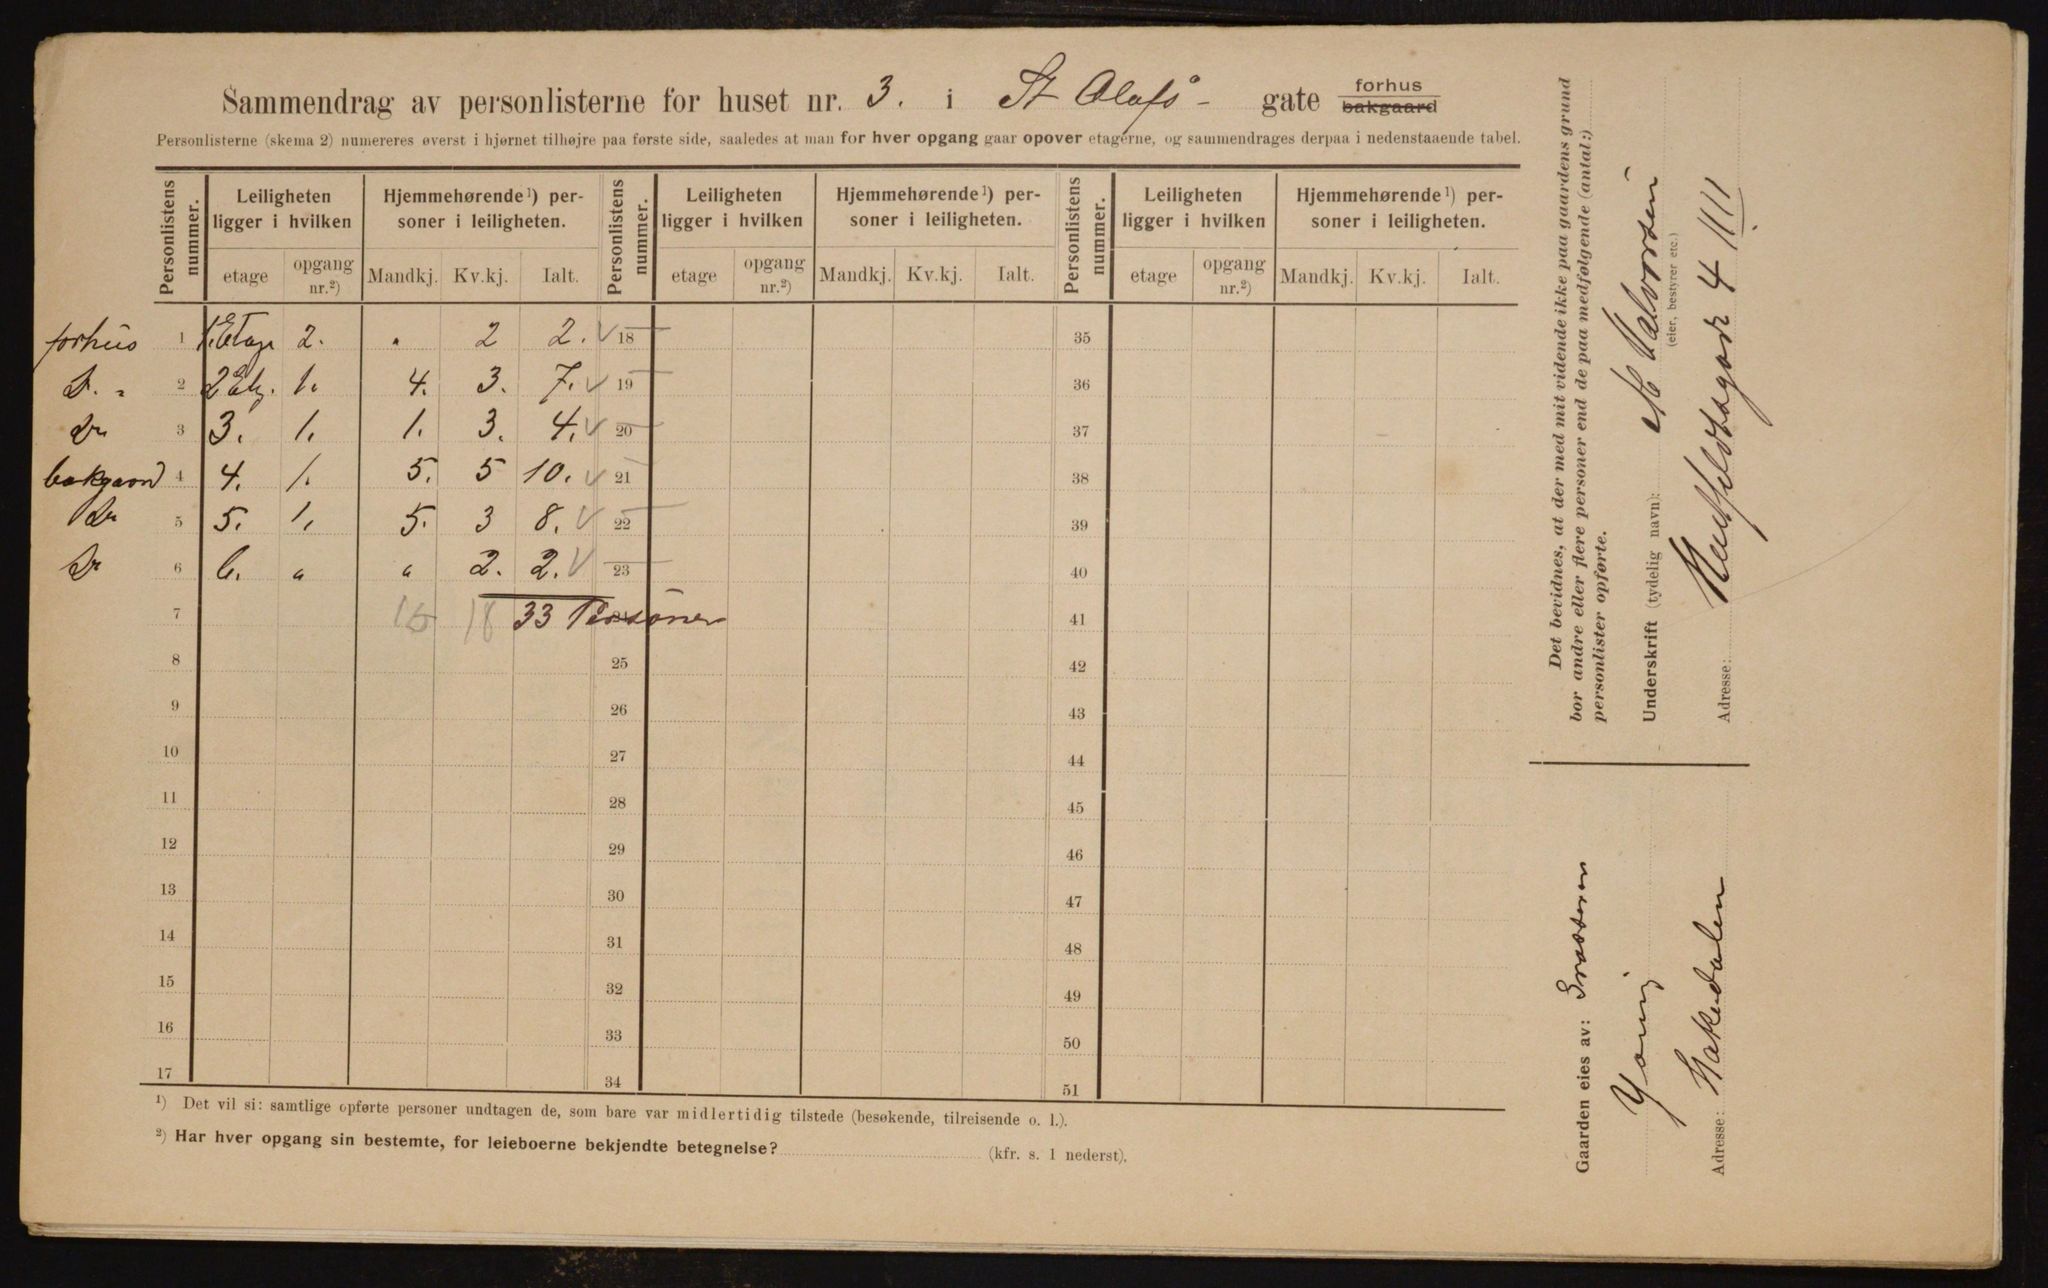 Sammendrag av personlisterne for huset nr. 3. i St Olafs- gate forhus bakgaard
Personlisterne (skema 2) numereres øverst i hjørnet tilhøjre paa første side, saaledes at man for hver opgang gaar opover etagerne, og sammendrages derpaa i nedenstaaende tabel.
Personlistens nummer. Leiligheten ligger i hvilken Hjemmehørende ¹) personer i leiligheten. Personlistens nummer. Leiligheten ligger i hvilken Hjemmehørende ¹) personer i leiligheten. Personlistens nummer. Leiligheten ligger i hvilken Hjemmehørende ¹) personer i leiligheten.
etage opgang nr.²) Mandkj. Kv.kj. Ialt. etage opgang nr.²) Mandkj. Kv.kj. Ialt. etage opgang nr.²) Mandkj. Kv.kj. Ialt.
forhus 1 1. Etage 2. " 2 2. 18 35
D. " 2 2 Etg. 1. 4. 3. 7. 19 36
Do 3 3. 1. 1. 3. 4. 20 37
bakgaard 4 4. 1. 5. 5 10. 21 38
Do 5 5. 1. 5. 3 8. 22 39
Do 6 6. " " 2. 2. 23 40
7 15 18 33 Personer 41
8 25 42
9 26 43
10 27 44
11 28 45
12 29 46
13 30 47
14 31 48
15 32 49
16 33 50
17 34 51
¹) Det vil si: samtlige opførte personer undtagen de, som bare var midlertidig tilstede (besøkende, tilreisende o. l.).
²) Har hver opgang sin bestemte, for leieboerne bekjendte betegnelse? (kfr. s. 1 nederst).
Det bevidnes, at der med mit vidende ikke paa gaardens grund
bor andre eller flere personer end de paa medfølgende (antal:)
personlister opførte.
Underskrift (tydelig navn): M Halvorsen
(eier, bestyrer etc.)
Adresse: Huitfeldtsgade 4 IIII
Gaarden eies av:
Young
Adresse: Hakedalen